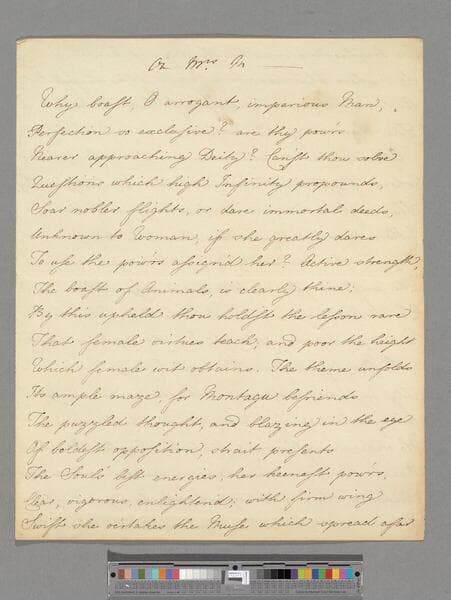 On Mrs. M
Why boast, O arrogant, imperious Man,
Perfection so exclusive? are thy pow'rs
Nearer approaching Deity? Can'st thou solve
Questions which high Infinity propounds,
Soar nobler flights, or dare immortal deeds,
Unknown to Woman, if she greatly dares
To use the pow'rs assign'd her? Active strength,
The boast of Animals, is clearly thine;
By this upheld thou holdst the lesson rare
That female virtues teach; and poor the height
Which female wit obtains. The theme unfolds
Its ample maze, for Montagu befriends
The puzzled thought, and blazing in the eye
Of boldest opposition, strait presents
The Soul's best energies; her keenest pow'rs,
Clear, vigorous, enlightend; with firm wing
Swift she o'ertakes the Muse which spread afar